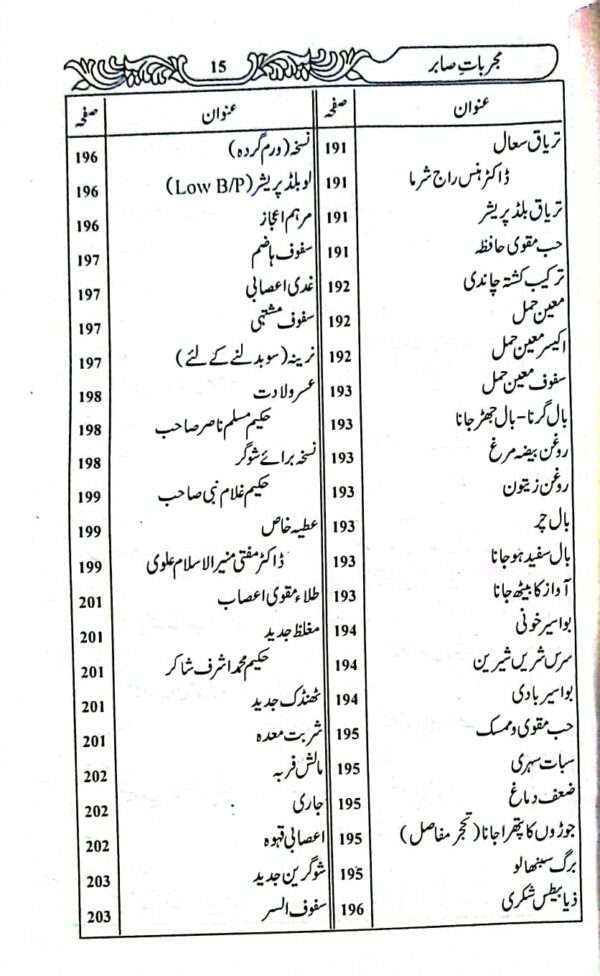 مجربات صابر
15
عنوان صفحہ
تریاق سعال 191
ڈاکٹر ہنس راج شرما 191
تریاق بلڈ پریشر 191
حب مقوی حافظہ 191
ترکیب کشتہ چاندی 192
معین حمل 192
اکسیر معین حمل 192
سفوف معین حمل 193
بال گرنا - بال جھڑ جانا 193
روغن بیضہ مرغ 193
روغن زیتون 193
بال چر 193
بال سفید ہو جانا 193
آواز کا بیٹھ جانا 193
بواسیر خونی 194
سرس شریں شیریں 194
بواسیر بادی 194
حب مقوی و ممسک 195
سبات سہری 195
ضعف دماغ 195
جوڑوں کا پتھرا جانا (تحجر مفاصل) 195
برگ سنبھالو 195
ذیابیطس شکری 196
عنوان صفحہ
نسخہ (ورم گردہ) 196
لو بلڈ پریشر (Low B/P) 196
مرہم اعجاز 196
سفوف ہاضم 197
غدی اعصابی 197
سفوف مشتہی 197
نرینہ (سو بدلنے کے لئے) 197
عسر ولادت 198
حکیم مسلم ناصر صاحب 198
نسخہ برائے شوگر 198
حکیم غلام نبی صاحب 199
عطیہ خاص 199
ڈاکٹر مفتی منیر الاسلام علوی 199
طلاء مقوی اعصاب 201
مغلظ جدید 201
حکیم محمد اشرف شاکر 201
ٹھنڈک جدید 201
شربت معدہ 201
مالش فربہ 202
جاری 202
اعصابی قہوہ 202
شوگرین جدید 203
سفوف السر 203